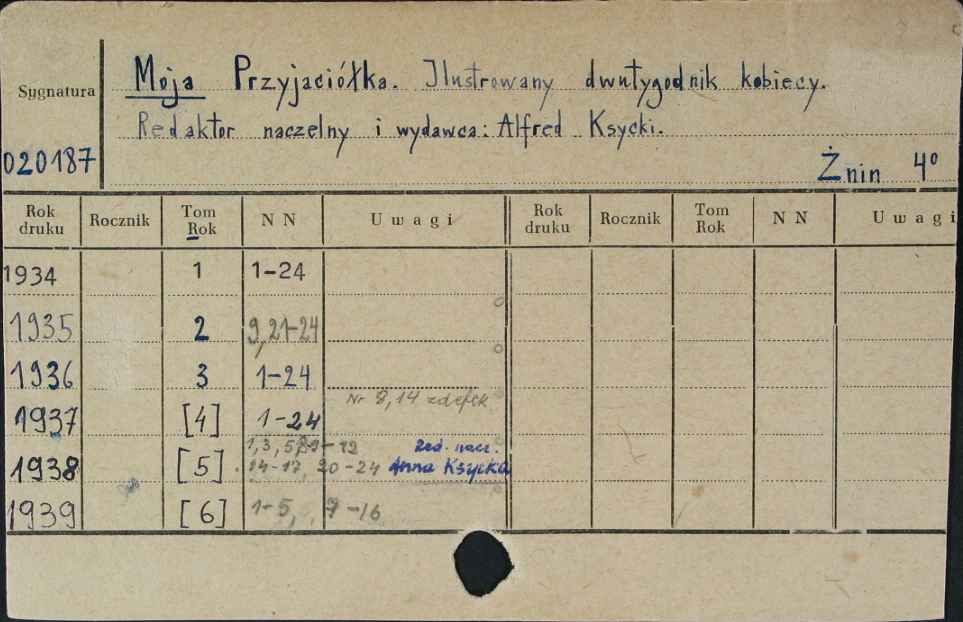 Moja Przyjaciółka. Ilustrowany dwutygodnik kobiecy.
Sygnatura
Redaktor naczelny i wydawca: Alfred Ksycki.
020187
Żnin 4°
Rok druku Rocznik Tom Rok N N Uwagi Rok druku Rocznik Tom Rok N N Uwagi
1934 1 1-24
1935 2 9,21-24
1936 3 1-24
Nr 8,14 zdefek
1937 [4] 1-24
1,3,5, -12 Red. nacz.
1938 [5] 14-17, 20-24 Anna Ksycka
1939 [6] 1-5, 9-16